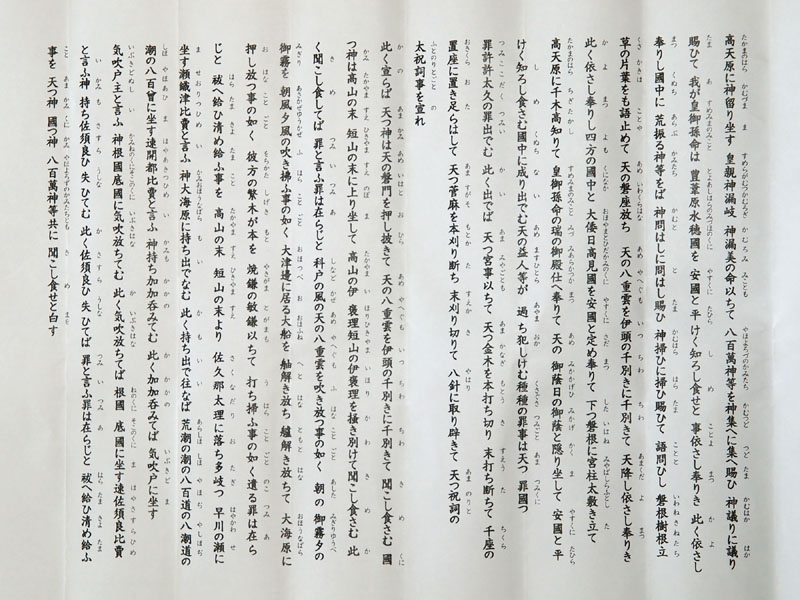 高天原に神留り坐す 皇親神漏岐 神漏美の命以ちて 八百萬神等を神集へに集へ賜ひ 神議りに議り
賜ひて 我が皇御孫命は 豐葦原水穗國を 安國と平けく知ろし食せと 事依さし奉りき 此く依さし
奉りし國中に 荒振る神等をば 神問はしに問はし賜ひ 神掃ひに掃ひ賜ひて 語問ひし 磐根樹根立
草の片葉をも語止めて 天の磐座放ち 天の八重雲を伊頭の千別きに千別きて 天降し依さし奉りき
此く依さし奉りし四方の國中と 大倭日高見國を安國と定め奉りて 下つ磐根に宮柱太敷き立て
高天原に千木高知りて 皇御孫命の瑞の御殿仕へ奉りて 天の 御蔭日の御蔭と隱り坐して 安國と平
けく知ろし食さむ國中に成り出でむ天の益人等が 過ち犯しけむ種種の罪事は天つ 罪國つ
罪許許太久の罪出でむ 此く出でば 天つ宮事以ちて 天つ金木を本打ち切り 末打ち斷ちて 千座の
置座に置き足らはして 天つ菅麻を本刈り斷ち 末刈り切りて 八針に取り辟きて 天つ祝詞の
太祝詞事を宣れ
此く宣らば 天つ神は天の磐門を押し披きて 天の八重雲を伊頭の千別きに千別きて 聞こし食さむ 國
つ神は高山の末 短山の末に上り坐して 高山の伊褒理短山の伊褒理を搔き別けて聞こし食さむ 此
く聞こし食してば 罪と言ふ罪は在らじと 科戶の風の天の八重雲を吹き放つ事の如く 朝の 御霧夕の
御霧を 朝風夕風の吹き拂ふ事の如く 大津邊に居る大船を 舳解き放ち 艫解き放ちて 大海原に
押し放つ事の如く 彼方の繁木が本を 燒鎌の敏鎌以ちて 打ち掃ふ事の如く 遺る罪は在ら
じと 祓へ給ひ淸め給ふ事を 高山の末 短山の末より 佐久那太理に落ち多岐つ 早川の瀨に
坐す瀨織津比賣と言ふ 神大海原に持ち出でなむ 此く持ち出で往なば 荒潮の潮の八百道の八潮道の
潮の八百曾に坐す速開都比賣と言ふ 神持ち加加吞みてむ 此く加加吞みてば 氣吹戶に坐す
氣吹戶主と言ふ 神根國 底國に氣吹放ちてむ 此く氣吹放ちてば 根國 底國に坐す速佐須良比賣
と言ふ神 持ち佐須良ひ失ひてむ 此く佐須良ひ失ひてば 罪と言ふ罪は在らじと 祓へ給ひ淸め給ふ
事を 天つ神 國つ神 八百萬神等共に 聞こし食せと白す